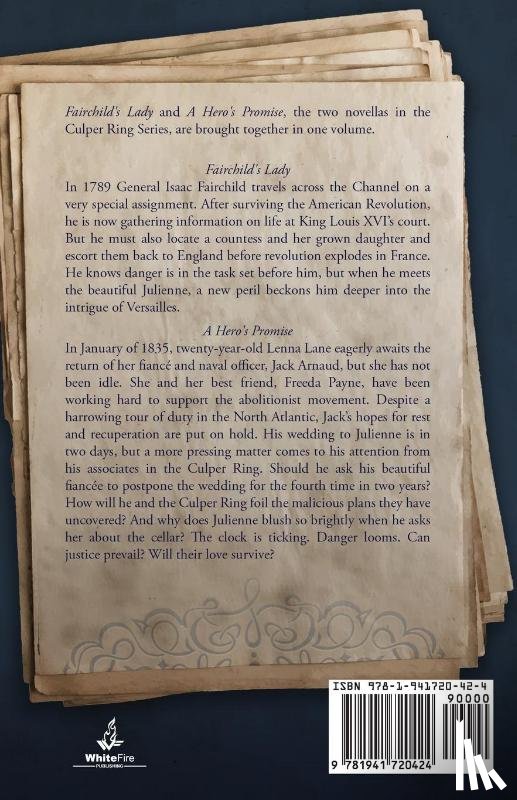 Fairchild's Lady and A Hero's Promise, the two novellas in the
Culper Ring Series, are brought together in one volume.
Fairchild's Lady
In 1789 General Isaac Fairchild travels across the Channel on a
very special assignment. After surviving the American Revolution,
he is now gathering information on life at King Louis XVI's court.
But he must also locate a countess and her grown daughter and
escort them back to England before revolution explodes in France.
He knows danger is in the task set before him, but when he meets
the beautiful Julienne, a new peril beckons him deeper into the
intrigue of Versailles.
A Hero's Promise
In January of 1835, twenty-year-old Lenna Lane eagerly awaits the
return of her fiancé and naval officer, Jack Arnaud, but she has not
been idle. She and her best friend, Freeda Payne, have been
working hard to support the abolitionist movement. Despite a
harrowing tour of duty in the North Atlantic, Jack's hopes for rest
and recuperation are put on hold. His wedding to Julienne is in
two days, but a more pressing matter comes to his attention from
his associates in the Culper Ring. Should he ask his beautiful
fiancée to postpone the wedding for the fourth time in two years?
How will he and the Culper Ring foil the malicious plans they have
uncovered? And why does Julienne blush so brightly when he asks
her about the cellar? The clock is ticking. Danger looms. Can
justice prevail? Will their love survive?
ISBN 978-1-941720-42-4
90000
9 781941 720424
WhiteFire
PUBLISHING